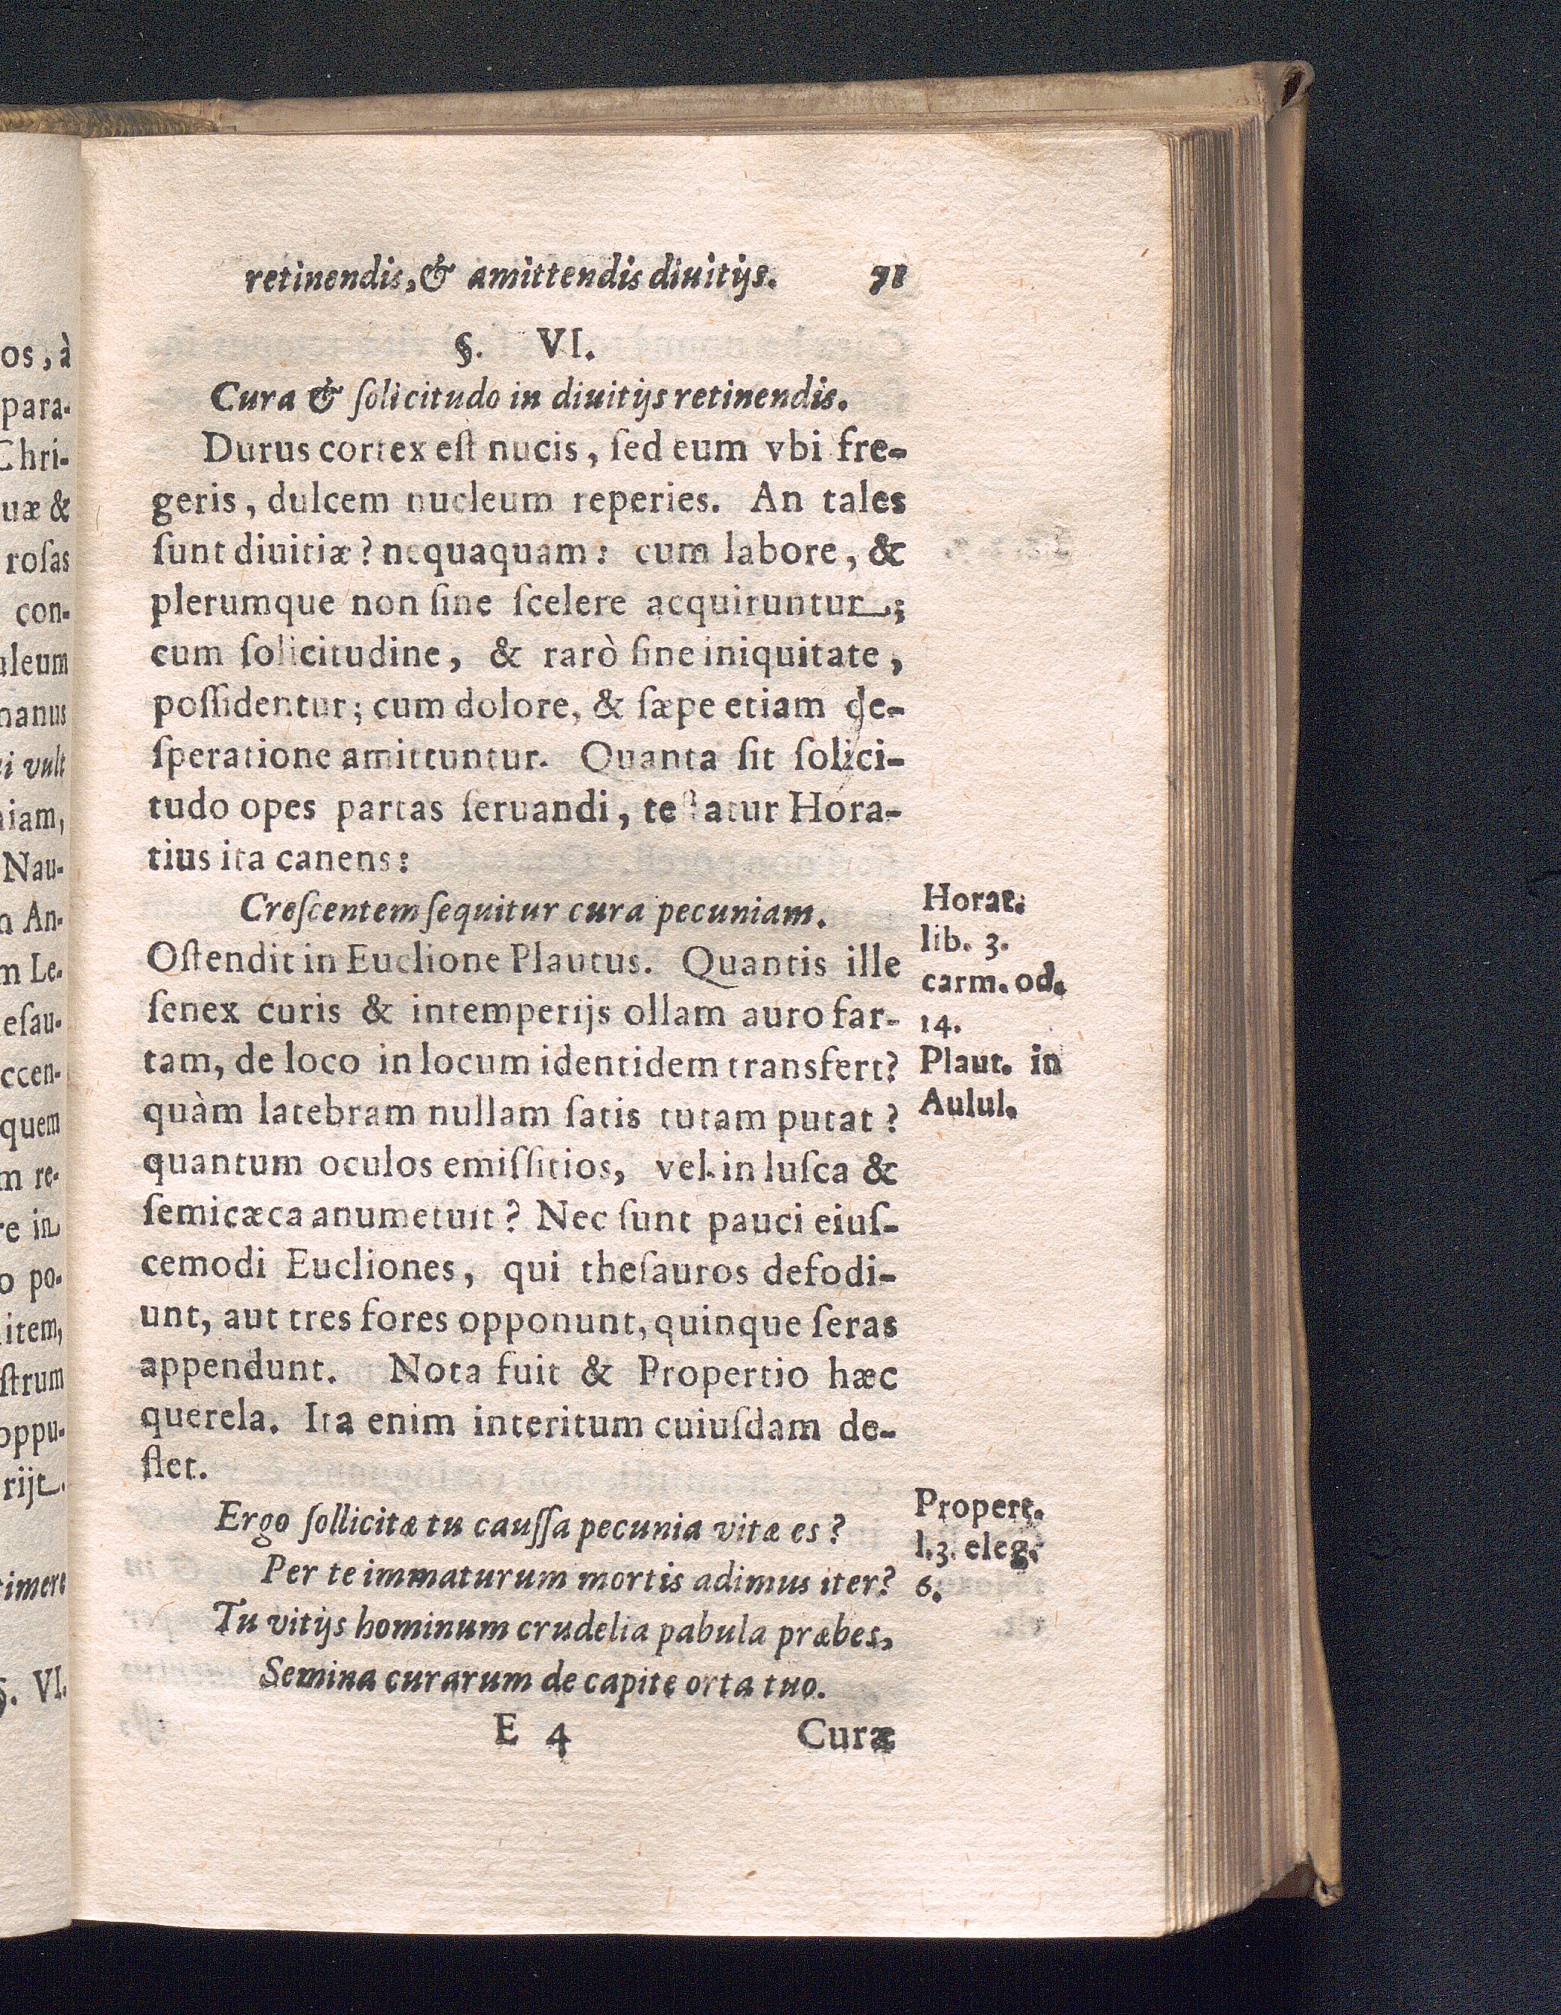 retinendis, & amittendis diuitijs. 71
§. VI.
Cura & ſolicitudo in diuitijs retinendis.
Durus cortex eſt nucis, ſed eum vbi fre-
geris, dulcem nucleum reperies. An tales
ſunt diuitiæ? nequaquam: cum labore, &
plerumque non ſine ſcelere acquiruntur;
cum ſolicitudine, & rarò ſine iniquitate,
poſſidentur; cum dolore, & ſæpe etiam de-
ſperatione amittuntur. Quanta ſit ſolici-
tudo opes partas ſeruandi, teſtatur Hora-
tius ita canens:
Creſcentem ſequitur cura pecuniam.
Oſtendit in Euclione Plautus. Quantis ille
ſenex curis & intemperijs ollam auro far-
tam, de loco in locum identidem transfert?
quàm latebram nullam ſatis tutam putat?
quantum oculos emiſſitios, vel in luſca &
ſemicæca anu metuit? Nec ſunt pauci eiuſ-
cemodi Eucliones, qui theſauros defodi-
unt, aut tres fores opponunt, quinque ſeras
appendunt. Nota fuit & Propertio hæc
querela. Ita enim interitum cuiuſdam de-
flet.
Ergo ſollicitæ tu cauſſa pecunia vitæ es?
Per te immaturum mortis adimus iter?
Tu vitijs hominum crudelia pabula præbes,
Semina curarum de capite orta tuo.
E 4 Curæ
Horat.
lib. 3.
carm. od.
14.
Plaut. in
Aulul.
Propert.
l.3. eleg.
6.
os, à
para-
Chri-
uæ &
roſas
con-
uleum
manus
i vult
niam,
Nau-
n An-
m Le-
eſau-
ccen-
quem
m re-
re in
o po-
item,
ſtrum
oppu-
rijt.
timere
§. VI.